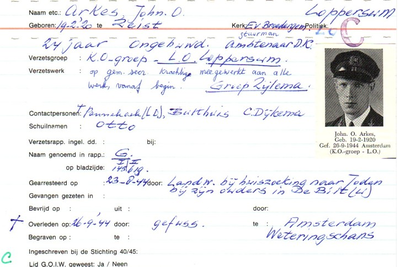 Naam etc.: Arkes, John. O. Loppersum
Geboren: 19-2-'20 te Zeist Kerk: Ev. Broedergem. Politiek:
stuurman
24 jaar ongehuwd. Ambtenaar D.K.
Verzetsgroep : K.O-groep - L.O. Loppersum.
Verzetswerk : op gem. zeer krachtig meegewerkt aan alle
werk, vanaf begin. Groep Zijlema.
Contactpersonen: (L.O.), Bulthuis C. Dijkema
Schuilnamen : Otto
Verzetsrapp. ingel. dd. : bij:
Naam genoemd in rapp.: G.
op bladzijde:
Gearresteerd op : 23-6-'44 door: Landw. bij huiszoeking naar Joden
Gevangen gezeten in : bij zijn ouders in De Bilt (U)
Bevrijd op : uit : door:
† Overleden op : 26-9-'44 door: gefuss. te: Amsterdam
Begraven op : te: Weteringschans
Ingeschreven bij de Stichting 40/45:
C
Lid G.O.I.W. geweest: Ja / Neen
C
John. O. Arkes,
Geb. 19-2-1920
Gef. 26-9-1944 Amsterdam
(K.O.-groep - L.O.)